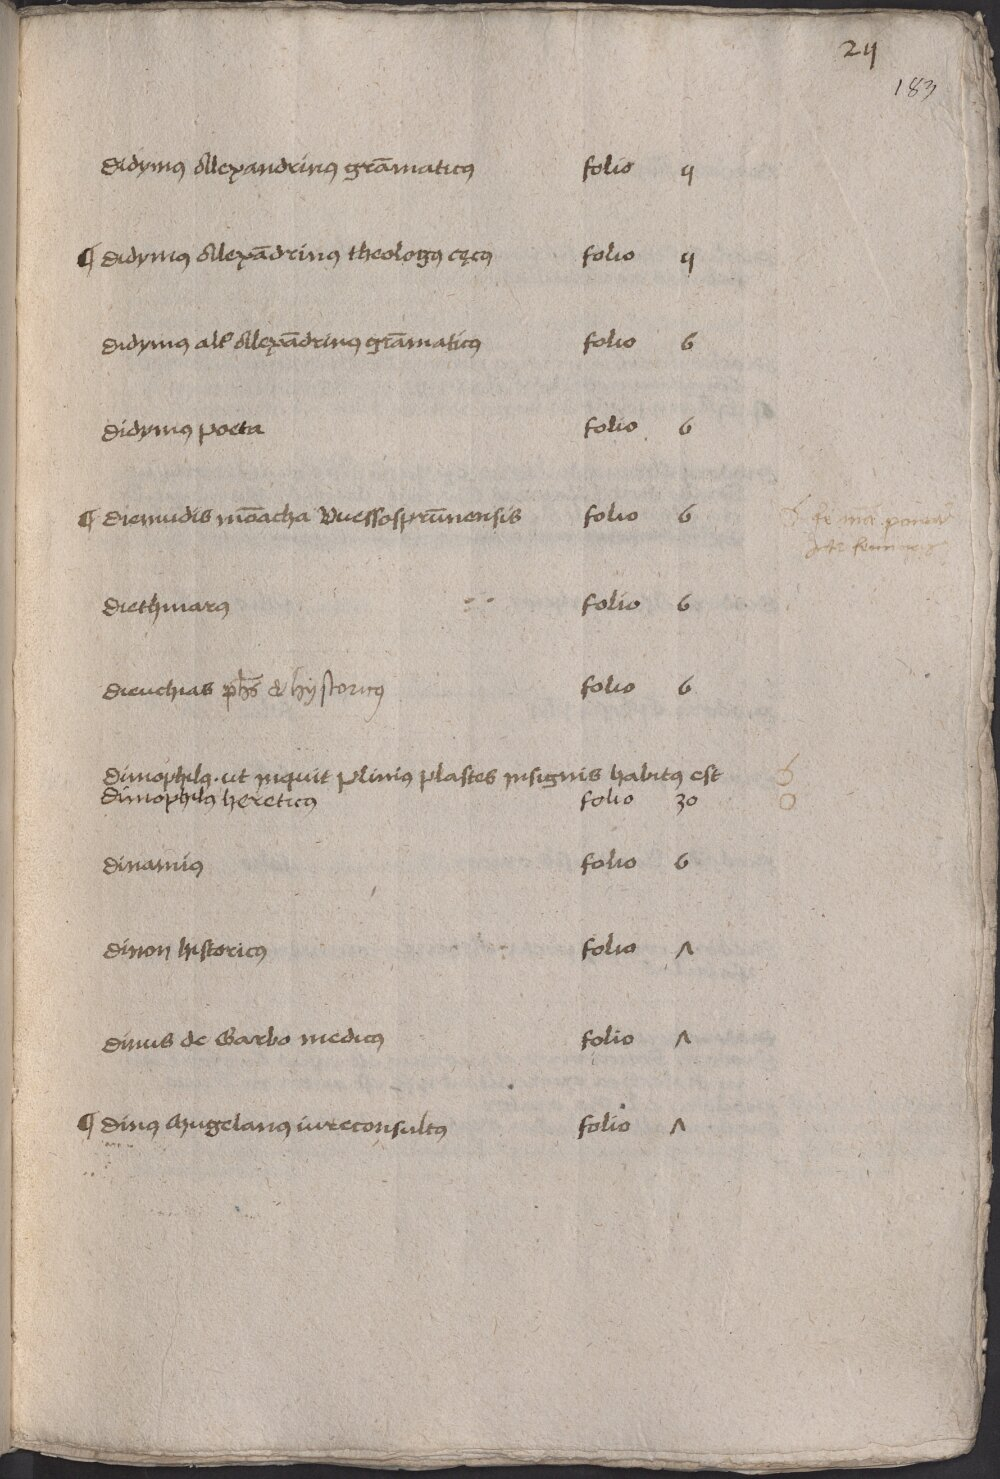 24
183
didymꝰ Allexandrinꝰ grām̄aticꝰ folio 4
¶ didymꝰ Allexādrinꝰ theologꝰ cęcꝰ folio 4
didymꝰ alt̉ Allexādrinꝰ grāmaticꝰ folio 6
didymꝰ poeta folio 6
¶ diemudis mōacha Vuessosprūnensis folio 6
diethmarꝰ folio 6
dieuchias ph̄s & hystoricꝰ folio 6
dimophilꝰ. ut inquit plinius plastes insignis habitꝰ est
dimophilꝰ hereticꝰ folio 30
dinamiꝰ folio 6
dinon historicꝰ folio Λ
dinus de Garbo medicꝰ folio Λ
¶ dinꝰ Mugelanꝰ iureconsultꝰ folio Λ